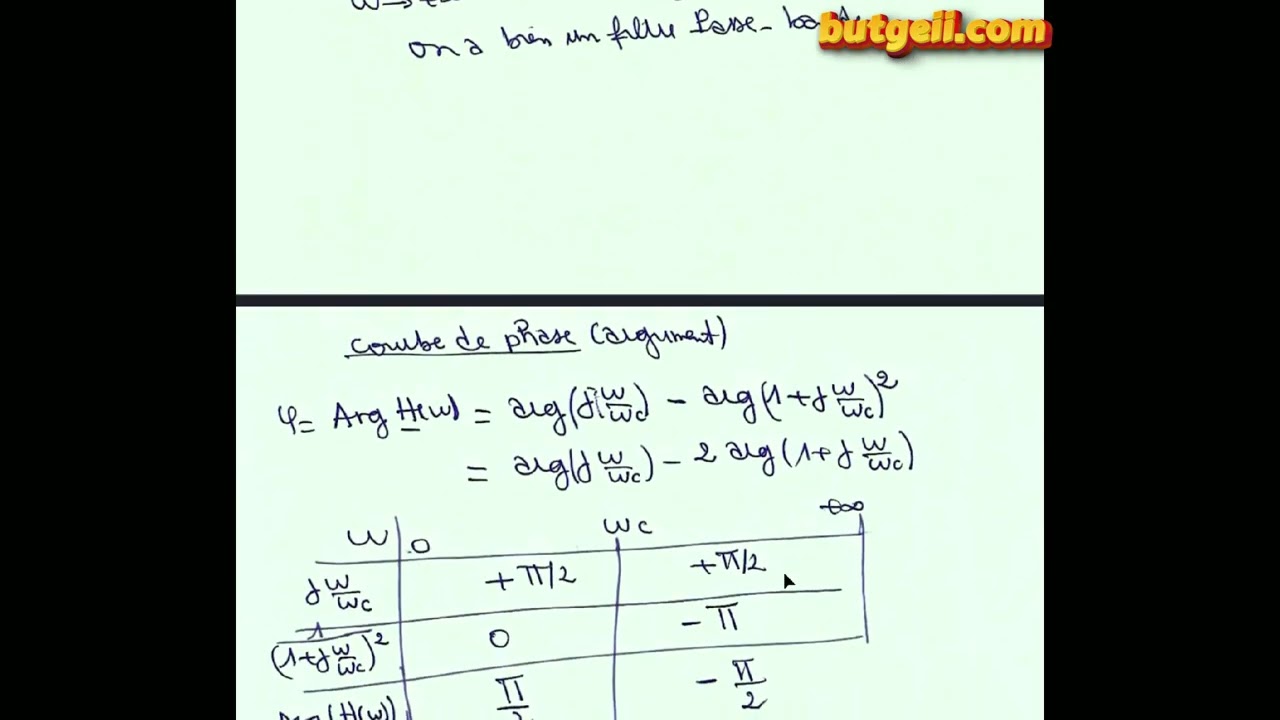 on a bien un filtre Passe-
butgeii.com
courbe de phase (argument)
φ = Arg H(w) = arg(j w/wc) - arg(1+j w/wc)²
= arg(j w/wc) - 2 arg(1+j w/wc)
w 0 wc +∞
j w/wc +π/2 +π/2
1/(1+j w/wc)² 0 -π
Arg(H(w)) π/2 -π/2